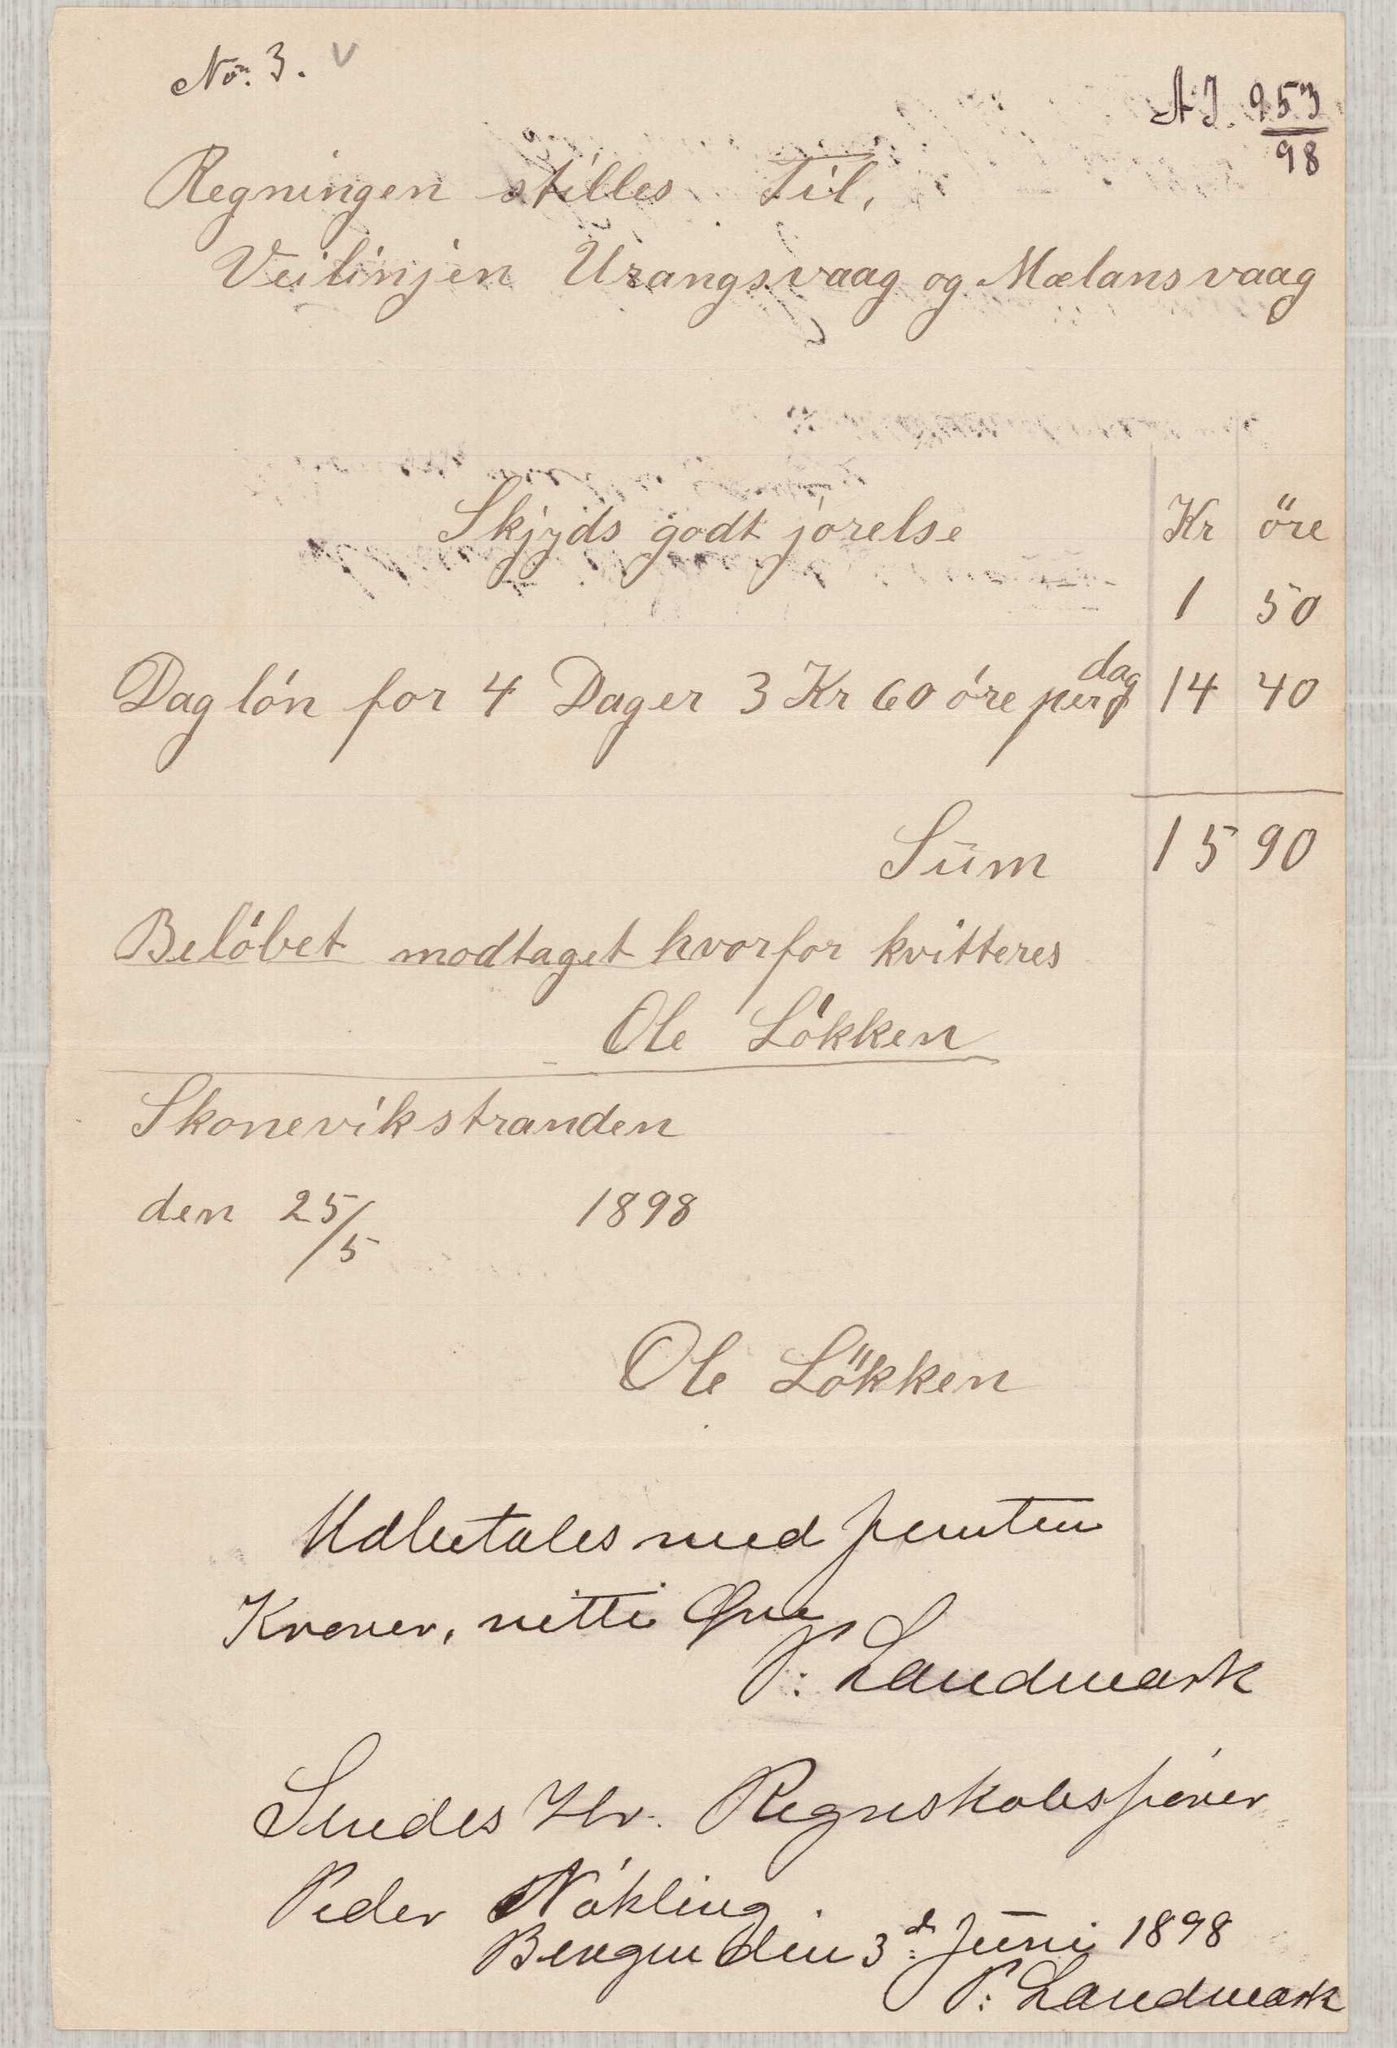 No. 3. V
A.J. 953/98
Regningen stilles Til,
Veilinjen Urangsvaag og Mælansvaag
Skjyds godt jörelse Kr öre
1 50
Dag lön for 4 Dager 3 Kr 60 öre per dag 14 40
Sum 15 90
Belöbet modtaget hvorfor kvitteres
Ole Lökken
Skonevikstranden
den 25/5 1898
Ole Lökken
Udbetales med femten
Kroner, nitti Øre
P: Landmark
Sendes Hr. Regnskabsfører
Peder Nökling.
Bergen den 3d: Juni 1898
P: Landmark